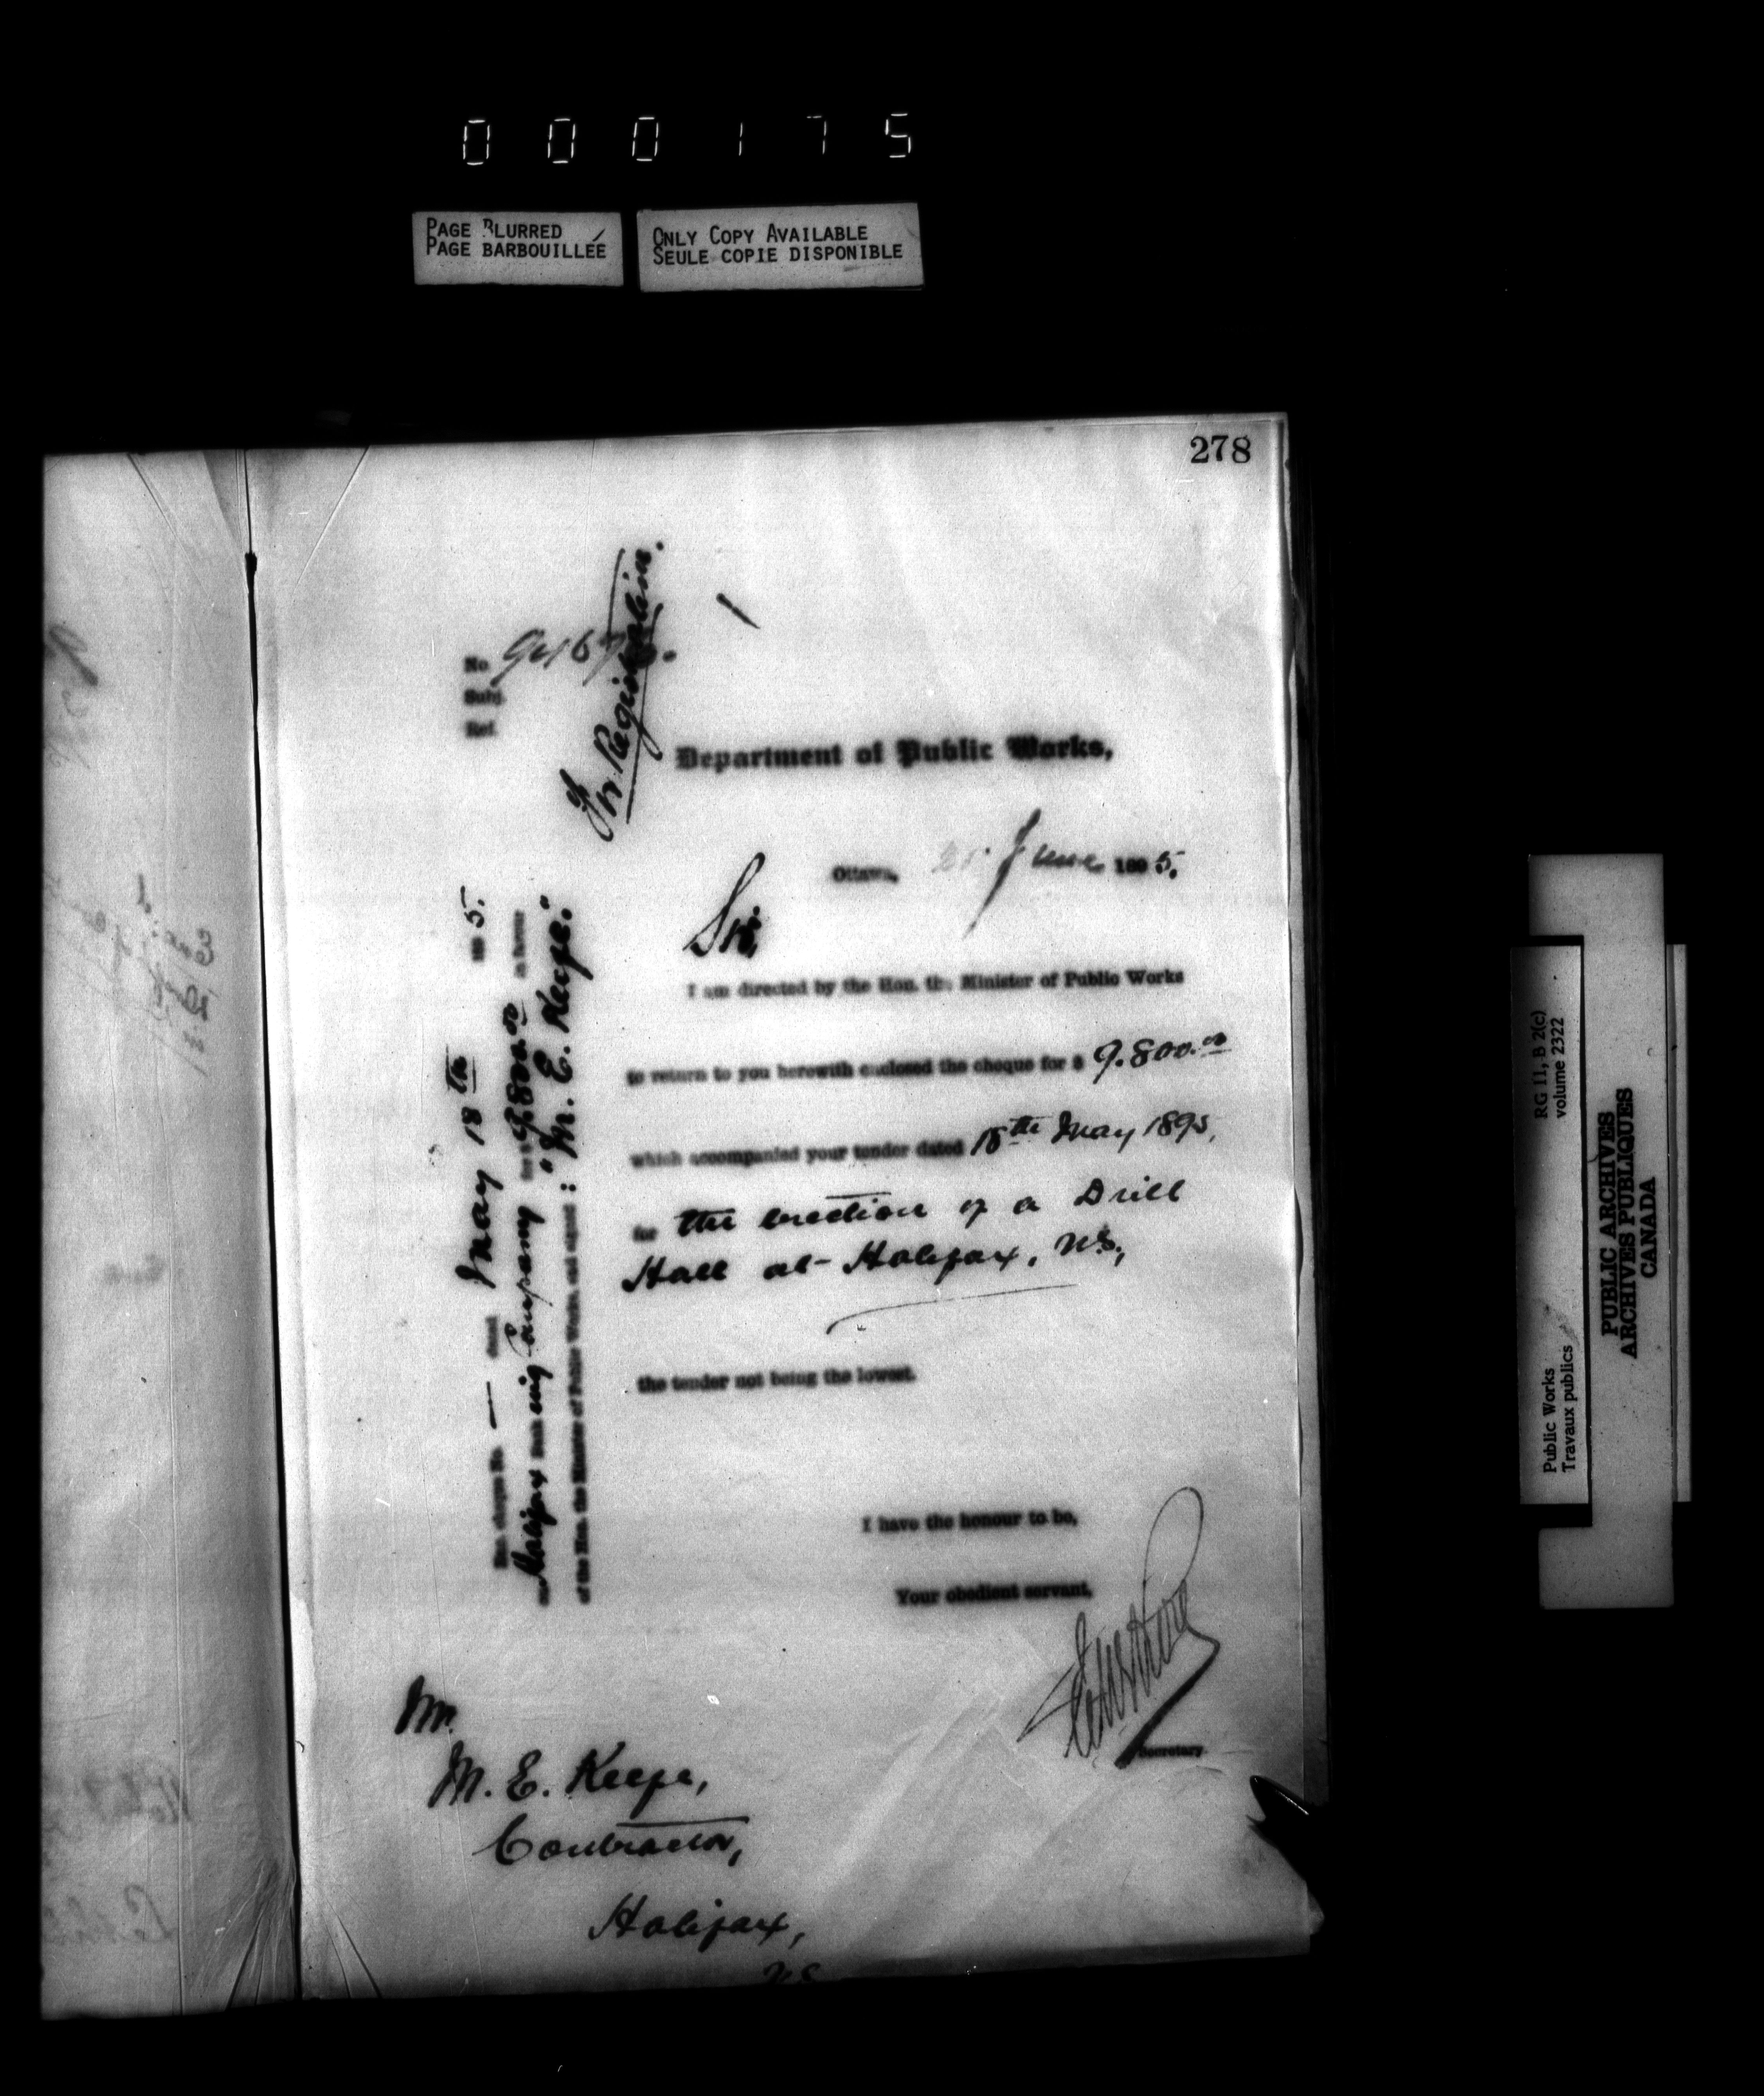 0 0 0 1 7 5
PAGE BLURRED
PAGE BARBOUILLÉE
ONLY COPY AVAILABLE
SEULE COPIE DISPONIBLE
278
No.
Subj.
Ref.
Registration.
Department of Public Works,
Ottawa, June 1895.
Sir,
I am directed by the Hon. the Minister of Public Works
to return to you herewith enclosed the cheque for $ 9.800.00
which accompanied your tender dated 18th May 1895,
for the erection of a Drill
Hall at Halifax, N.S.,
the tender not being the lowest.
I have the honour to be,
Your obedient servant,
Secretary.
Enc. cheque No. — dated May 18th 1895.
on Halifax Banking Company for $ 9.800.00 in favour
of the Hon. the Minister of Public Works, and signed : "M. E. Keefe."
Mr.
M. E. Keefe,
Contractor,
Halifax,
N.S.
RG 11, B 2(c)
volume 2322
Public Works
Travaux publics
PUBLIC ARCHIVES
ARCHIVES PUBLIQUES
CANADA